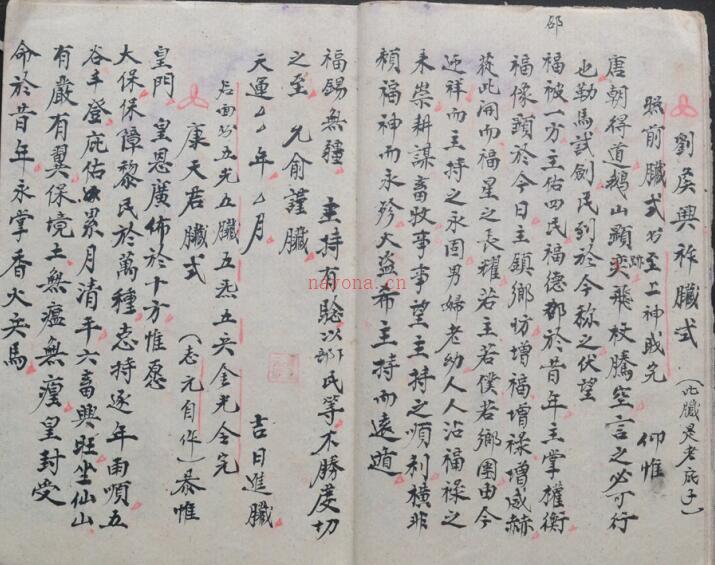 邵
劉侯興祚牘式(此牘是老底子)
照前牘式另至上神戝完 仰惟
唐朝得道鵝山顯跡奕飛杖騰空言之必可行
也勒馬試劍民到於今称之伏望
福被一方主佑四民福德 於昔年主掌權衡
福像顕於今日主鎮鄉坊增福增禄增威赫
從此洞而福星之長耀若主若僕若鄉團由今
迎祥而主持之永固男婦老幼人人沾福禄之
来崇耕謀畜牧事事望主持之順利橫非
頼福神而永殄大盗希主持而遠遁
福錫無疆 主持有 以 氏等不勝虔切
之至 允俞謹牘
天運厶厶年厶月 吉日進牘
另面 五光五牘五炁五英金光全完
康天君牘式(志元自作)恭惟
皇門 皇恩廣佈於十方惟愿
大保保障黎民於萬種志持逐年雨順五
谷丰登庇佑累月清平六畜興旺坐仙山
有嚴有翼保境土無瘟無瘴皇封受
命於昔年永掌香火兵馬
nayona.cn